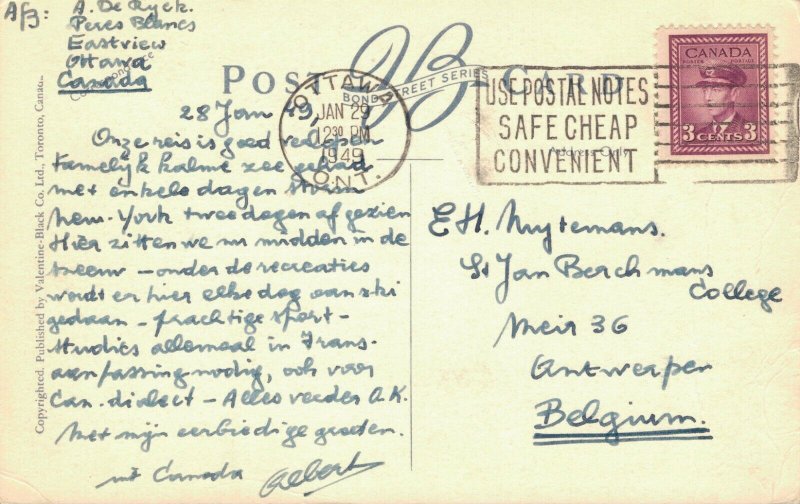 Afz: A. De Ryck.
Peres Blancs
Eastview
Ottawa
Canada
Correspondence
POST CARD
JB
BOND STREET SERIES
OTTAWA
JAN 29
12 30 PM
1949
ONT.
USE POSTAL NOTES
SAFE CHEAP
CONVENIENT
Address Only
CANADA
POSTES POSTAGE
3 CENTS 3
Copyrighted. Published by Valentine-Black Co. Ltd., Toronto, Canada.
28 Jan 49
Onze reis is goed verlopen
tamelijk kalme zee gehad
met enkele dagen storm
New-York twee dagen af gezien
Hier zitten we nu midden in de
sneeuw – onder de recreaties
wordt er hier elke dag aan ski
gedaan – prachtige sport –
studies allemaal in Frans.
aanpassing nodig, ook voor
Can. dialect – Alles verder O.K.
Met mijn eerbiedige groeten.
uit Canada Albert
E.H. Nuytemans.
St Jan Berchmans
College
Meir 36
Antwerpen
Belgium.